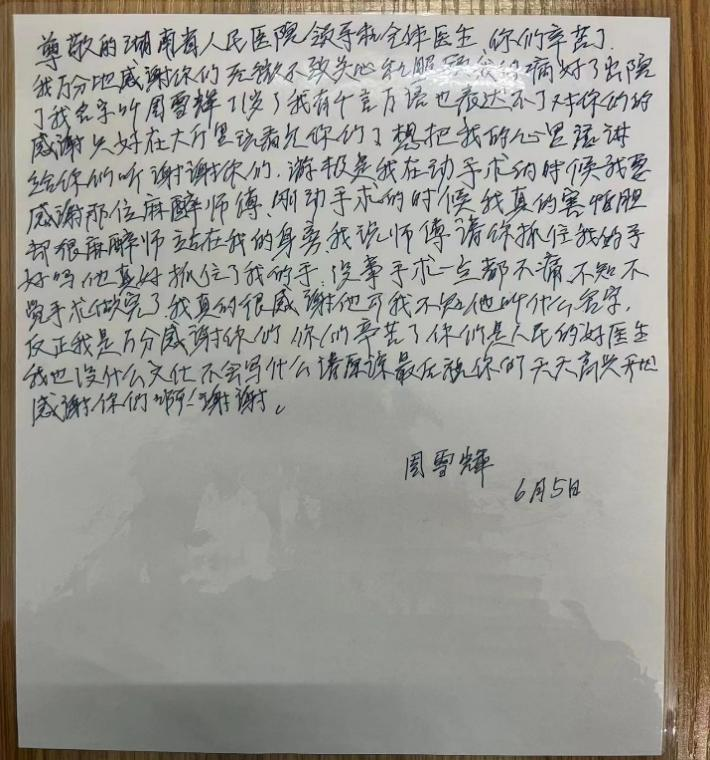 尊敬的湖南省人民医院领导和全体医生 你们辛苦了
我万分地感谢你们无微不致关心和照顾我的病好了出院
了我名字叶周雪辉71岁了我有千言万语也表达不了对你们的
感谢只好在大厅里说看见你们了想把我的心里话讲
给你们听谢谢你们.游极是我在动手术的时候我要
感谢那位麻醉师傅.刚动手术的时候我真的害怕胆
却狠麻醉师立站在我的身旁.我说师傅请你抓住我的手
好吗.他真好抓住了我的手.没事手术一点都不痛.不知不
觉手术做完了.我真的很感谢他可我不知他叫什么名字.
反正我是万分感谢你们 你们辛苦了你们是人民的好医生
我也没什么文化不会写什么请原谅最后祝你们天天高兴开心
感谢你们啊!谢谢。
周雪辉
6月5日